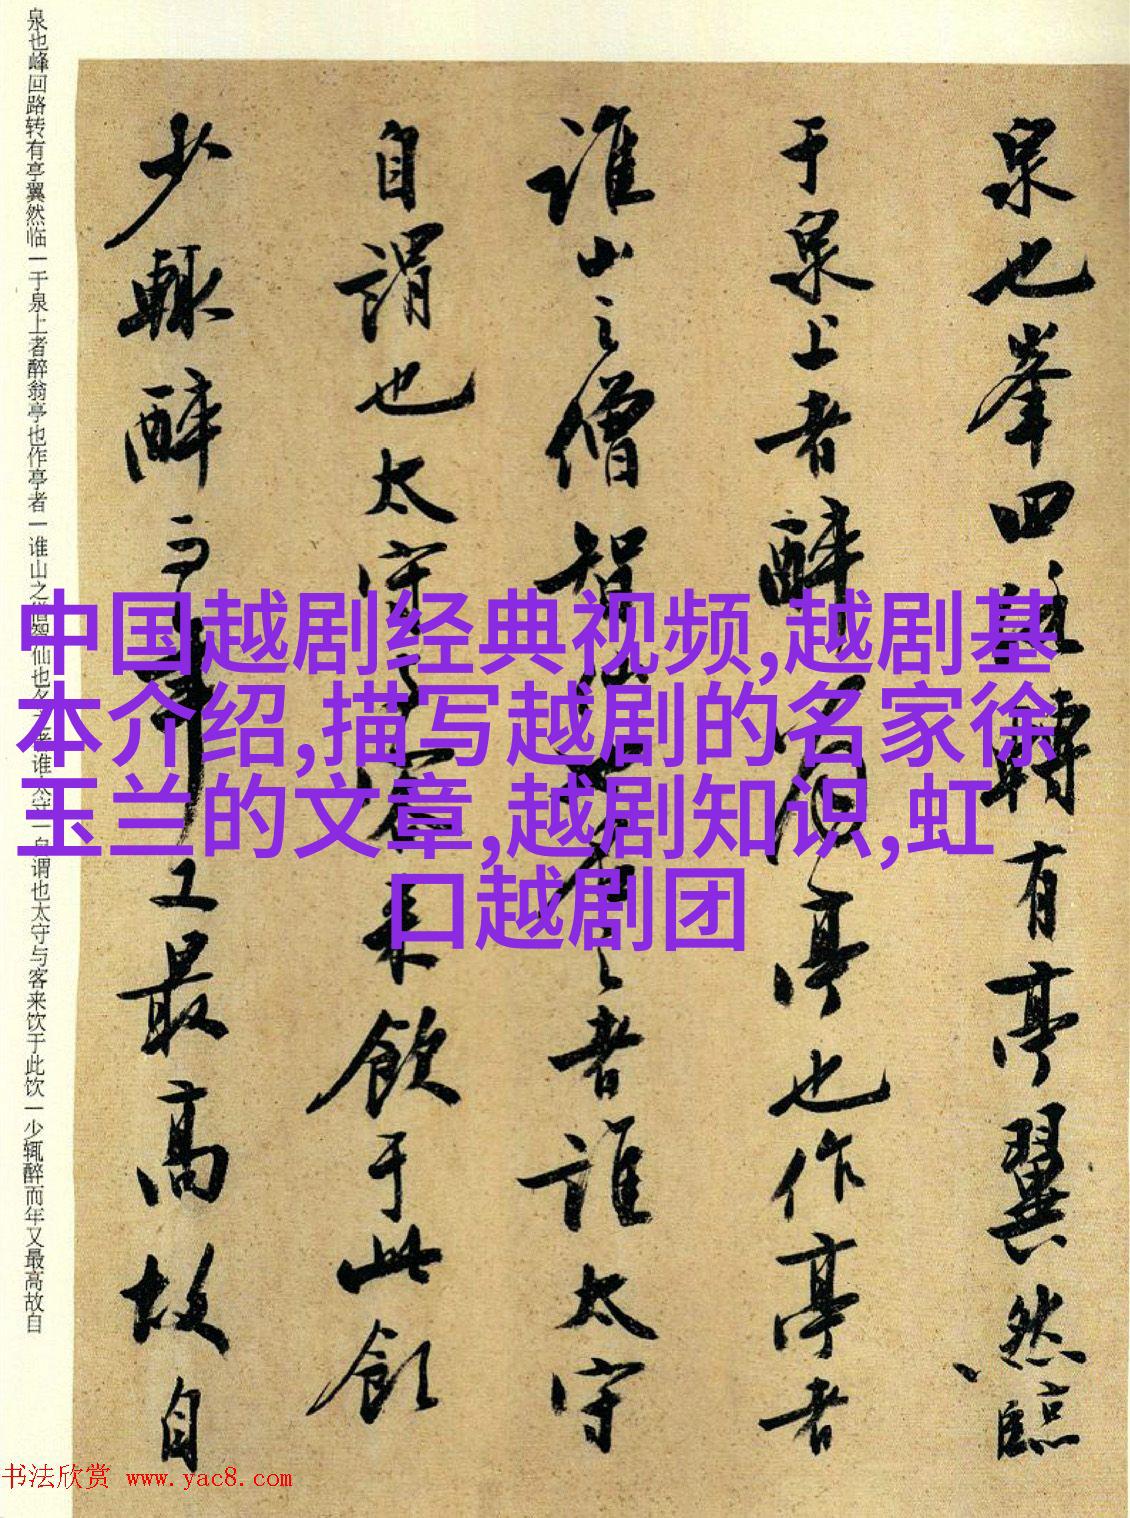 中国越剧经典视频,越剧基
本介绍,描写越剧的名家徐
玉兰的文章,越剧知识,虹
口越剧团
泉也峯回路轉有亭翼然臨
于泉上者醉翁亭也作亭者
誰山之僧智僊也名之者誰太守
自謂也太守與客来飲于此飲
少輒醉而年又最高故自
泉也峰回路转有亭翼然临一于泉上者醉翁亭也作亭者一谁山之僧智仙也名之者谁太守一自谓也太守与客来饮于此饮一少辄醉而年又最高故自
书法欣赏 www.yac8.com